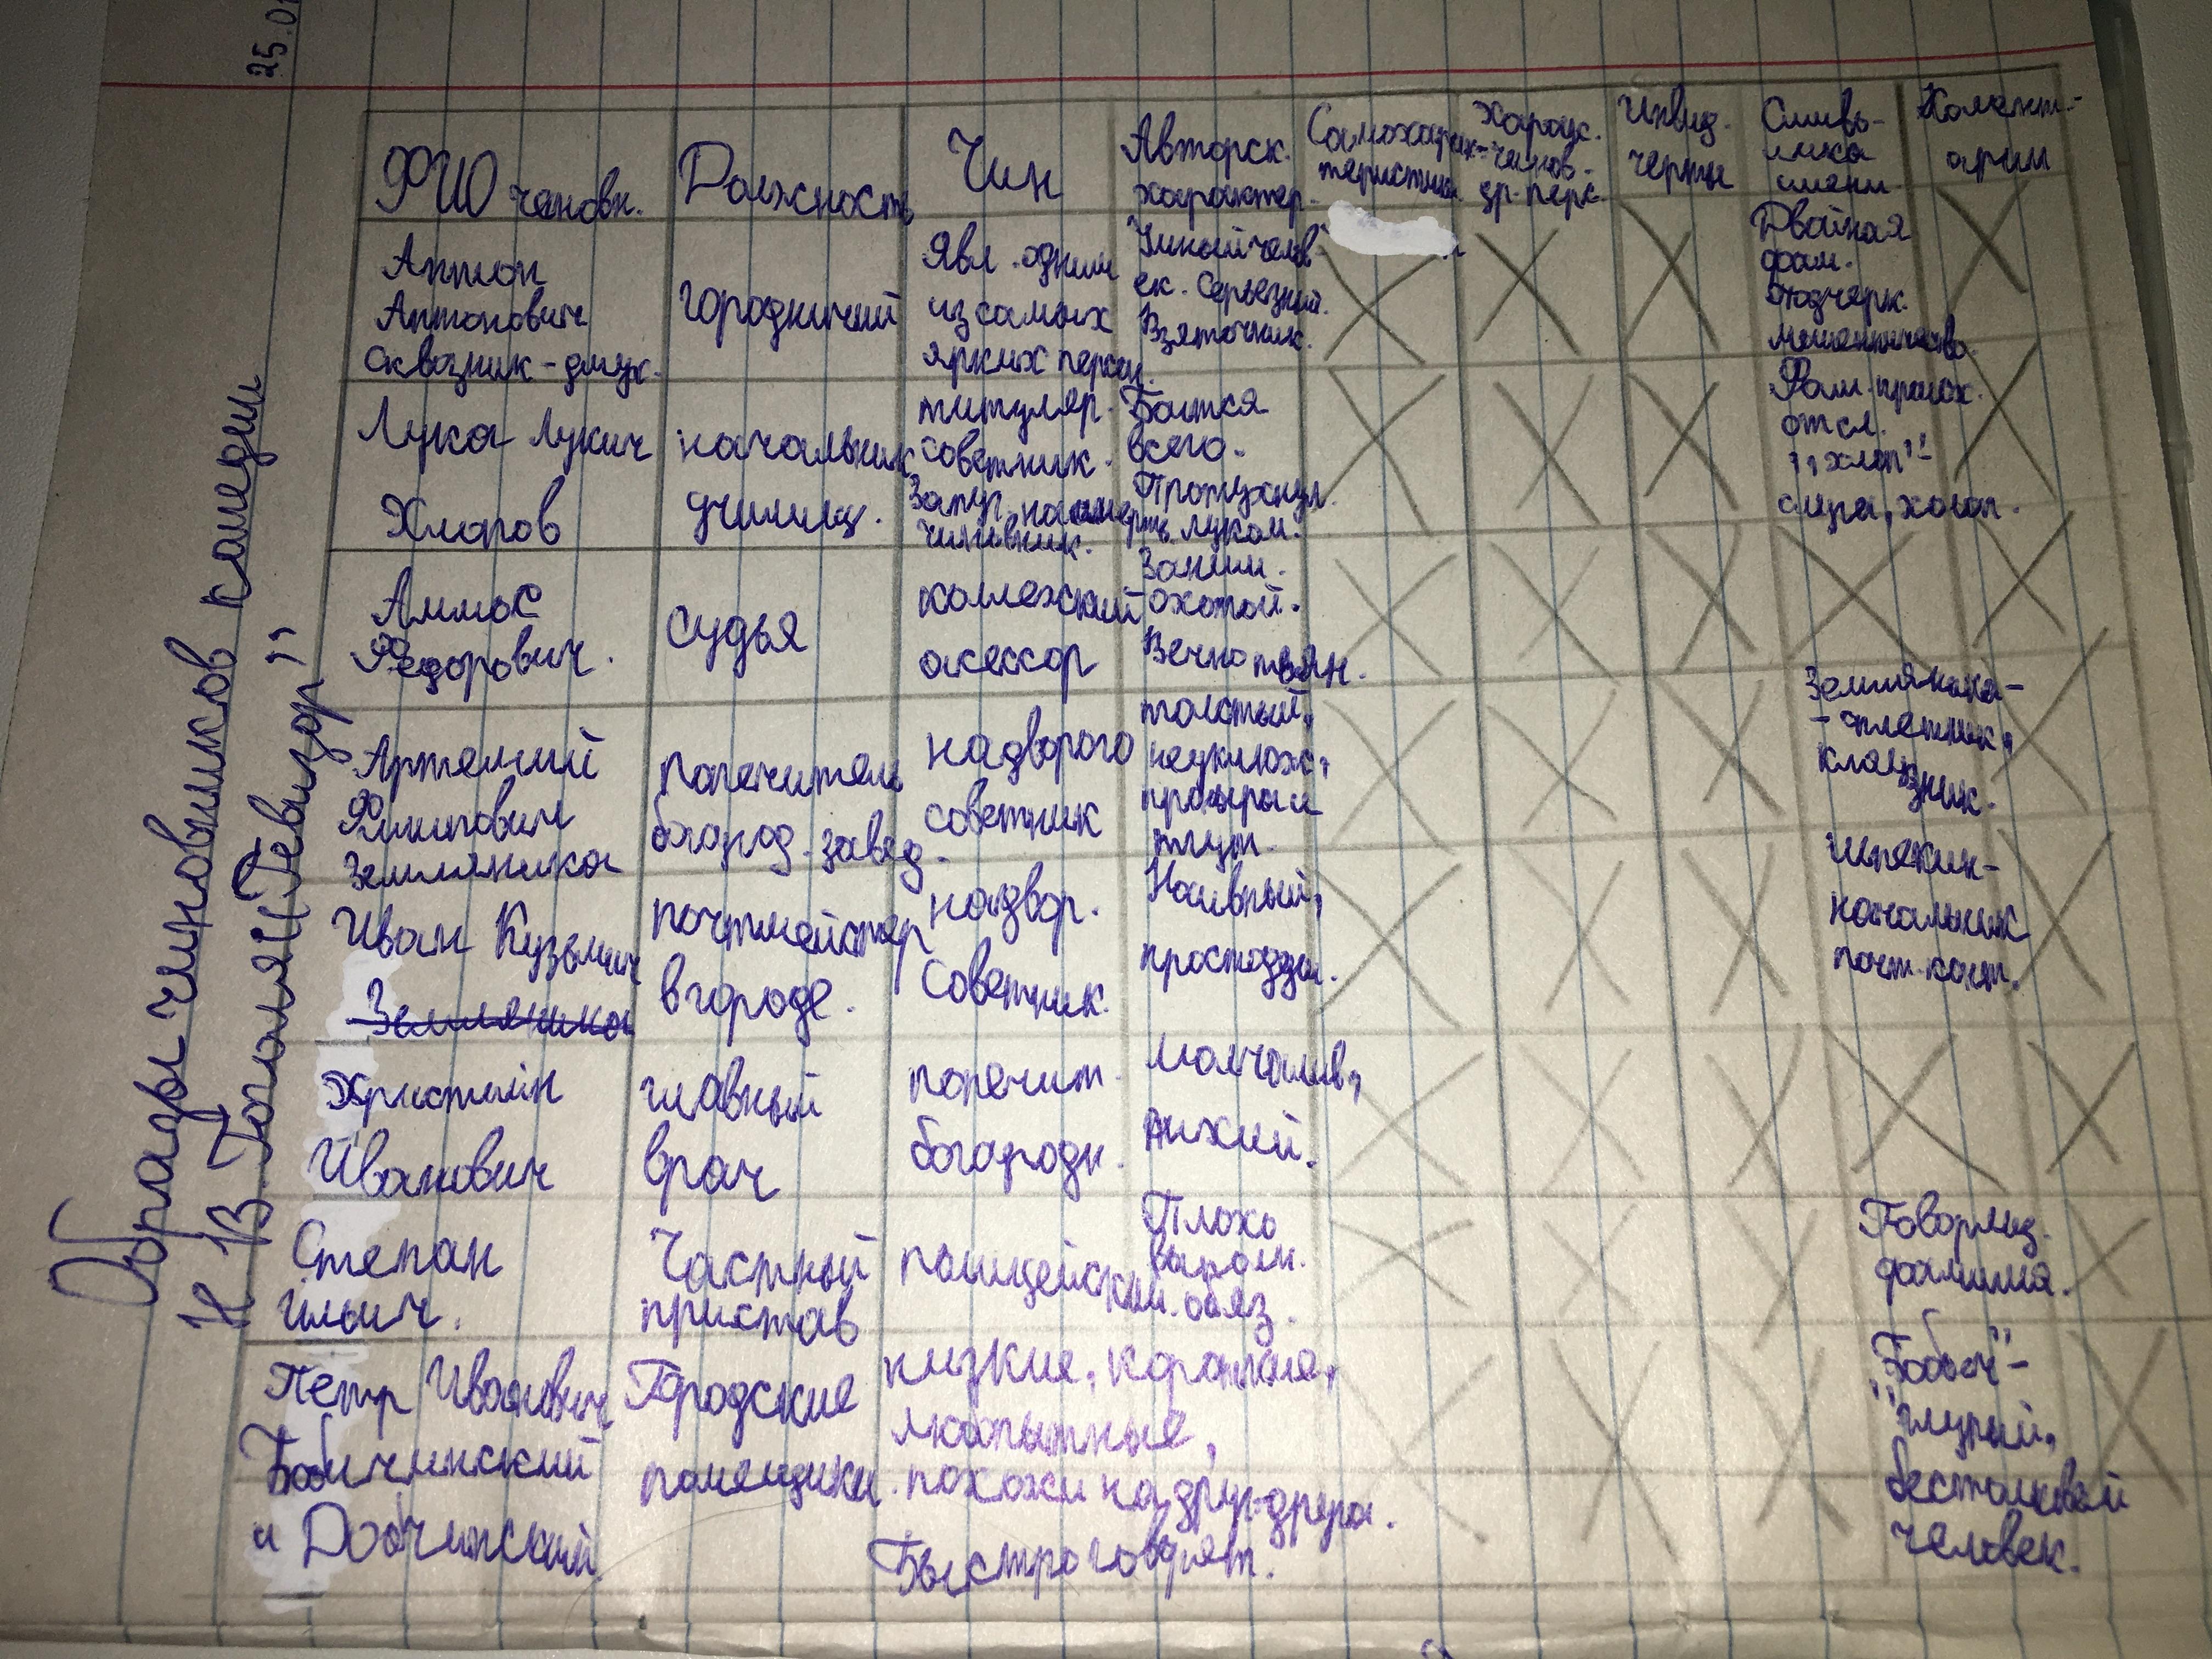 25.01
Образы чиновников комедии
Н. В. Гоголя "Ревизор"
ФИО чиновн.
Должность
Чин
Авторск.
характер.
Самохарак-
теристика
Характ.
чинов.
др. перс.
Индивид.
черты
Символ-
ика
имени
Коммент-
арии
Антон
Антонович
Сквозник-дмух.
городничий
Явл. одним
из самых
ярких персон.
Умный челов-
ек. Серьезный.
Взяточник.
Двойная
фам.
подчерк.
мошенничество.
Лука Лукич
Хлопов
начальник
училищ.
титуляр.
советник.
Запуг. насмерть
чиновник.
Боится
всего.
Протухнул
луком.
Фам. происх.
от сл.
"холоп"-
слуга, холоп.
Аммос
Федорович.
судья
коллежский
асессор
Заним.
охотой.
Вечно пьян.
Артемий
Филипович
Земляника
попечитель
богоугод. завед.
надворого
советник
толстый,
неуклюж.,
проныра и
плут.
Земляника-
- сплетник,
кляузник.
Иван Кузьмич
Земляника
почтмейстер
в городе.
надвор.
советник.
Наивный,
простодуш.
Шпекин-
начальник
почт. конт.
Христиан
Иванович
главный
врач
попечит.
богородн.
Молчалив,
тихий.
Степан
Ильич.
Частный
пристав
полицейский.
Плохо
выполн.
обяз.
Говорящ.
фамилия.
Петр Иванович
Бобчинский
и Добчинский.
Городские
помещики.
низкие, коротkие,
любопытные,
похожи на друг-друга.
Быстро говорят.
"Бобыч"-
"глупый,
бестолковый
человек.